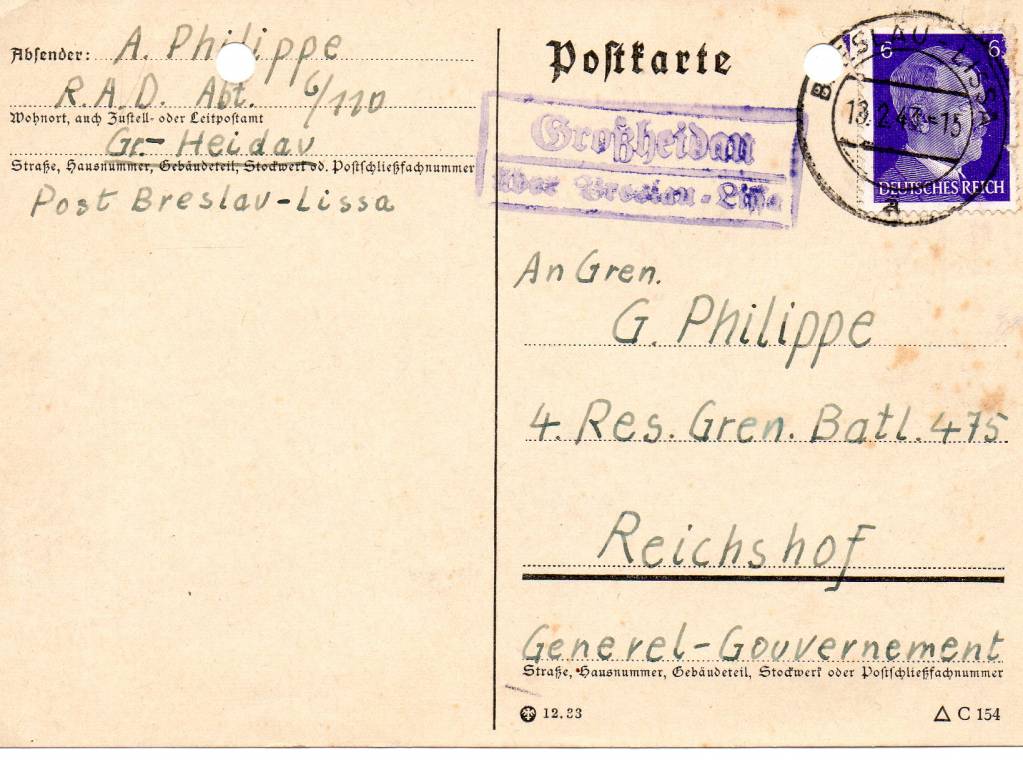 Absender: A. Philippe
R.A.D. Abt. 6/110
Wohnort, auch Zustell- oder Leitpostamt
Gr.- Heidau
Straße, Hausnummer, Gebäudeteil, Stockwerk od. Postschließfachnummer
Post Breslau-Lissa
Postkarte
Großheidau
über Breslau-Lissa
BRESLAU-LISSA
13.2.43.-15
a
6 6
DEUTSCHES REICH
An Gren.
G. Philippe
4. Res. Gren. Batl. 475
Reichshof
Generel-Gouvernement
Straße, Hausnummer, Gebäudeteil, Stockwerk oder Postschließfachnummer
12.33
C 154